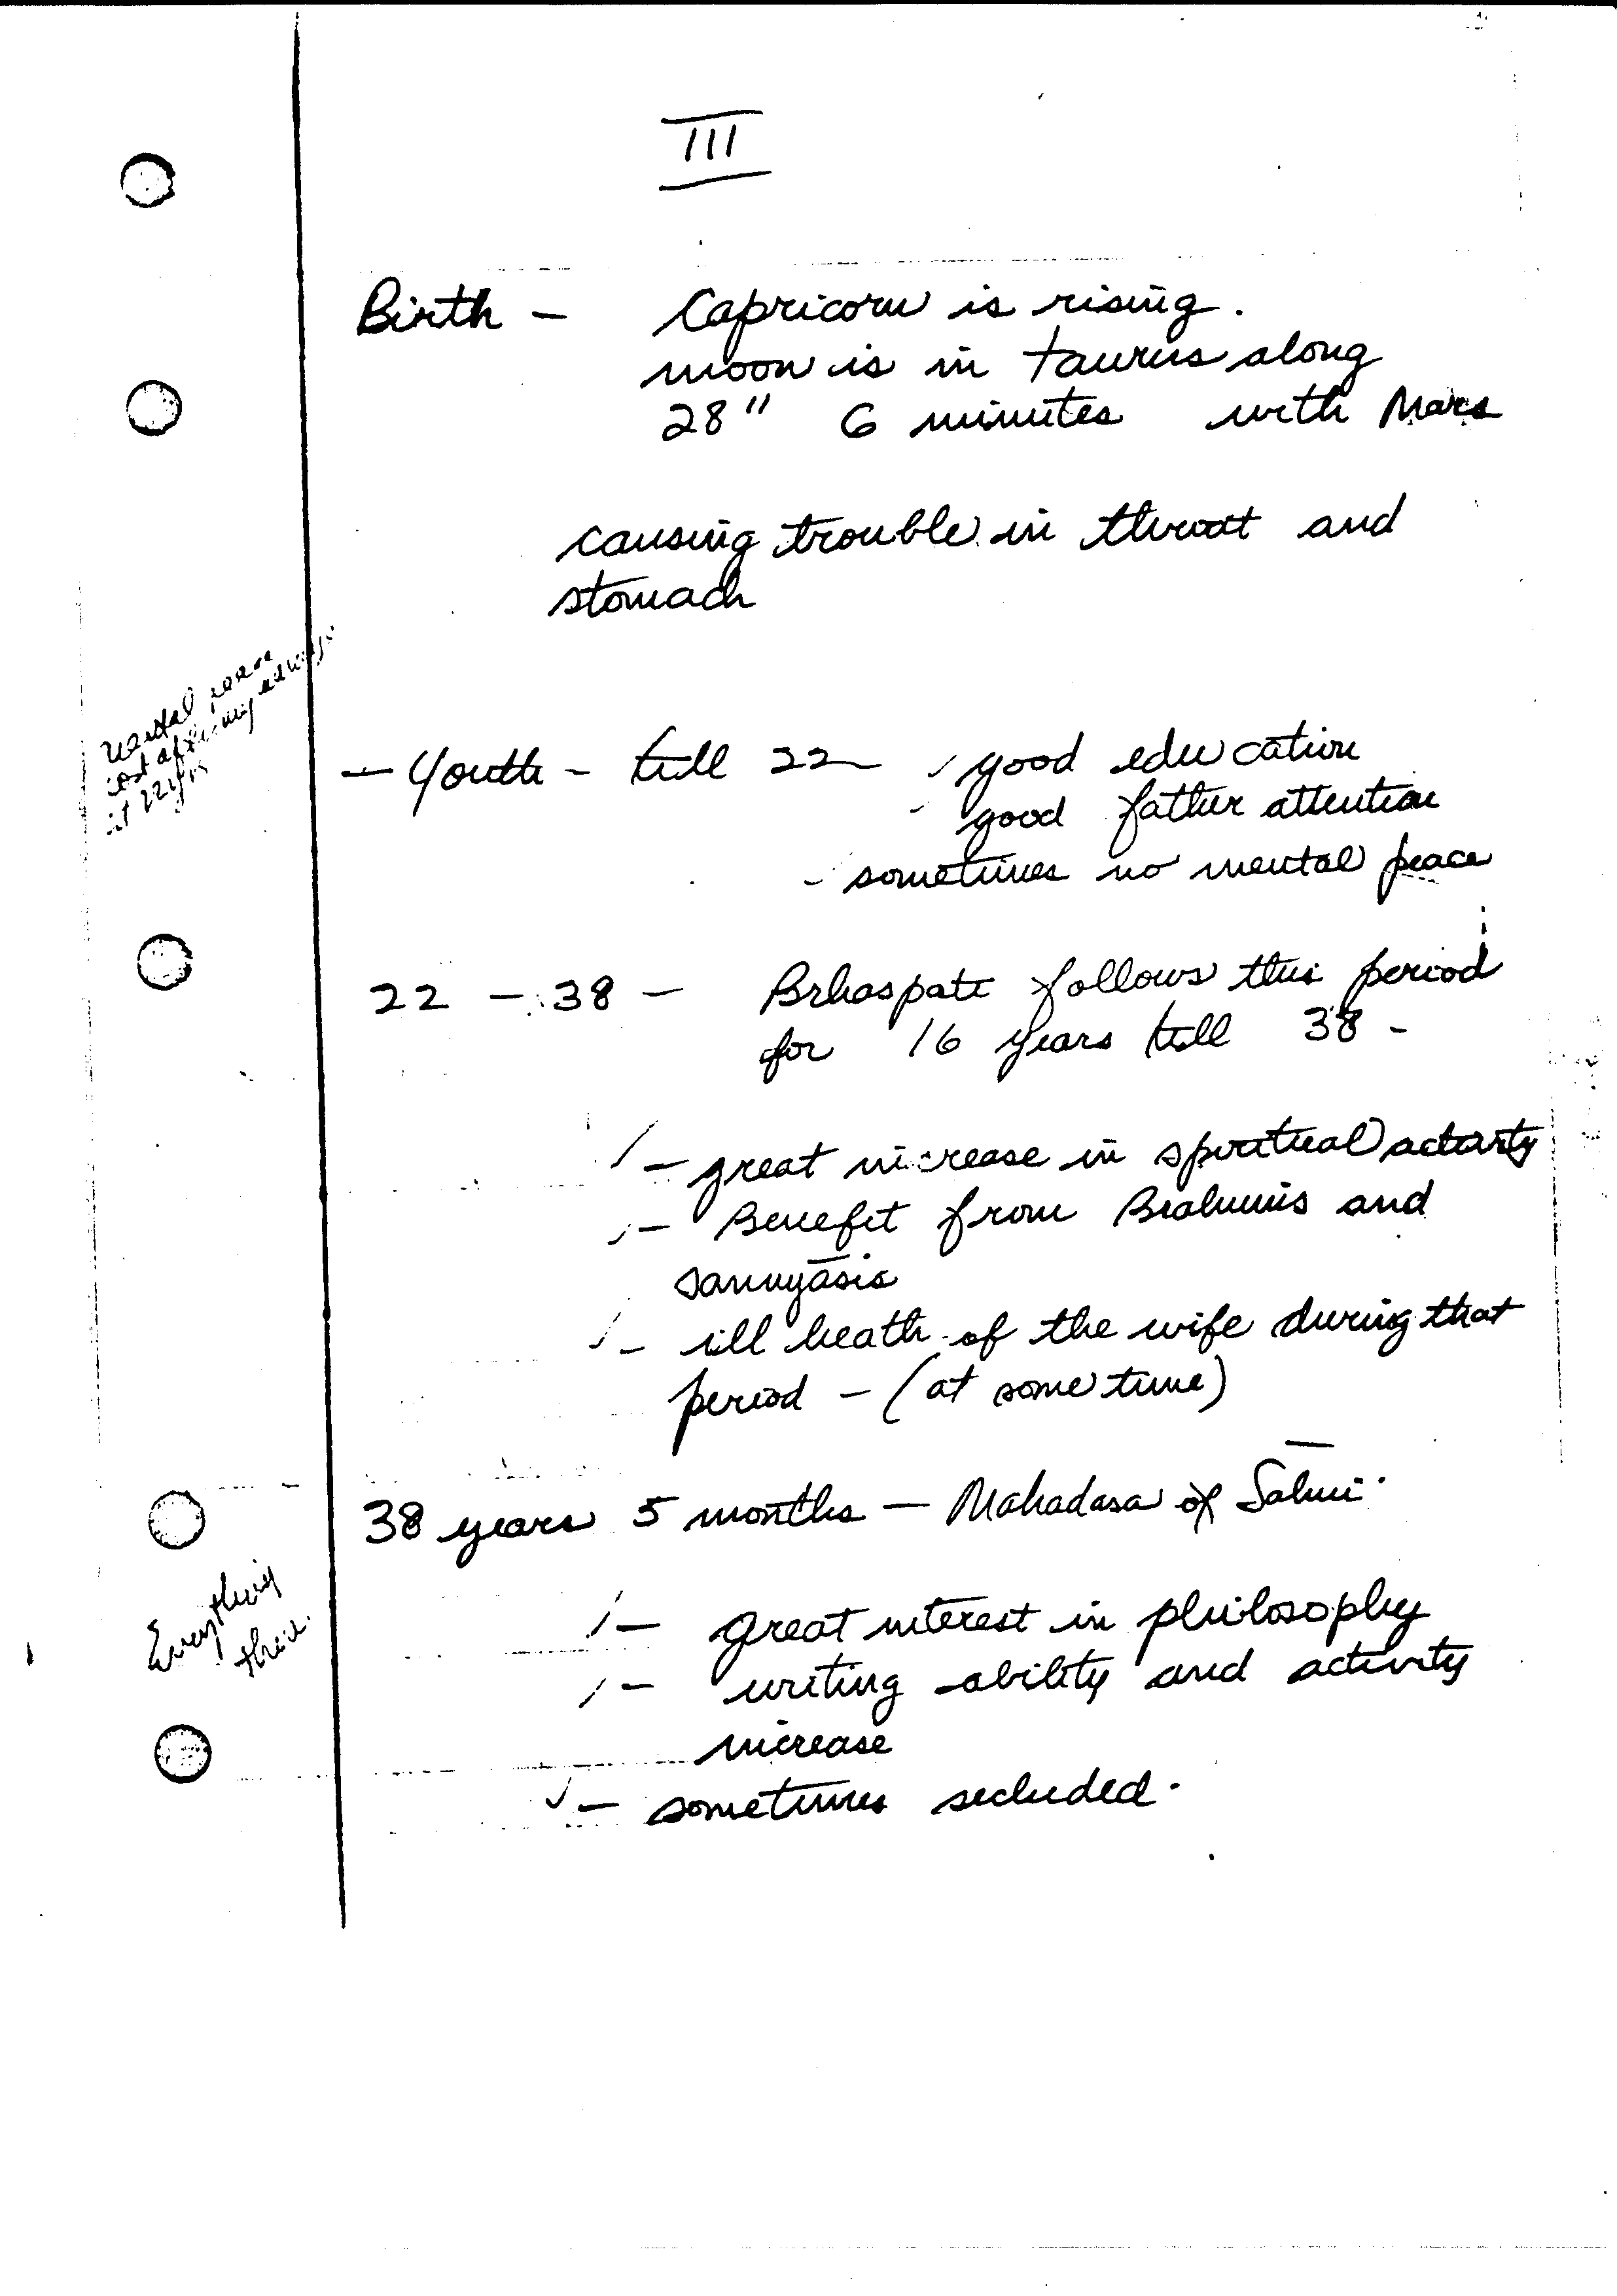 III
Birth - Capricorn is rising.
moon is in taurus along
28" 6 minutes with Mars
causing trouble in throat and
stomach
mental peace
at 22 yrs
- Youth - till 22 - good education
- good father attention
- sometimes no mental peace
22 - 38 - Brhaspati follows this period
for 16 years till 38 -
- great increase in spiritual activity
- Benefit from Brahmins and
sannyāsis
- ill heath of the wife during that
period - (at some time)
38 years 5 months - Mahadasa of Sahni
Everything
their
- great interest in philosophy
- writing ability and activity
increase
- sometimes secluded.